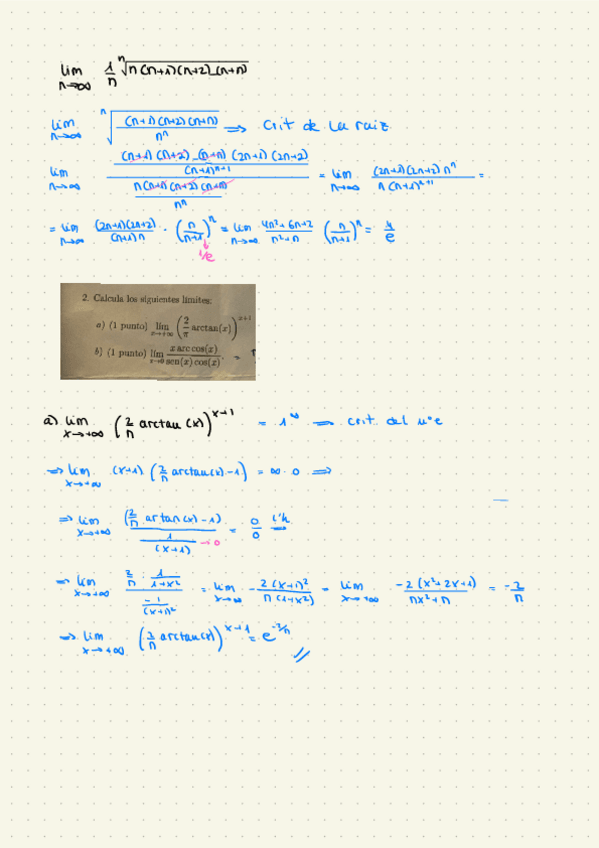 lim n→∞ 1/n ⁿ√(n(n+1)(n+2)...(n+n))
lim n→∞ ⁿ√((n+1)(n+2)(n+n) / nⁿ) ⟹ Crit de la raiz
lim n→∞ ((n+1)(n+2)...(n+n)(2n+1)(2n+2) / (n+1)ⁿ⁺¹) / (n(n+1)(n+2)(n+n) / nⁿ) = lim n→∞ (2n+1)(2n+2)nⁿ / n(n+1)ⁿ⁺¹ =
= lim n→∞ (2n+1)(2n+2) / (n+1)n · (n/(n+1))ⁿ = lim n→∞ (4n²+6n+2) / (n²+n) (n/(n+1))ⁿ = 4/e
1/e
2. Calcula los siguientes límites:
a) (1 punto) lim x→+∞ (2/π arctan(x))^(x+1)
b) (1 punto) lim x→0 x arc cos(x) / sen(x) cos(x).
a) lim x→+∞ (2/π arctan(x))^(x+1) = 1^∞ ⟹ crit. del nº e
⟹ lim x→+∞ (x+1) (2/π arctan(x) - 1) = ∞·0 ⟹
⟹ lim x→+∞ (2/π artan(x) - 1) / (1/(x+1)) →0 = 0/0 L'h ⟹
⟹ lim x→+∞ (2/π · 1/(1+x²)) / (-1/(x+1)²) = lim x→∞ - 2(x+1)² / π(1+x²) = lim x→+∞ -2(x²+2x+1) / πx²+π = -2/π
⟹ lim x→+∞ (2/π arctan(x))^(x+1) = e^(-2/π) //